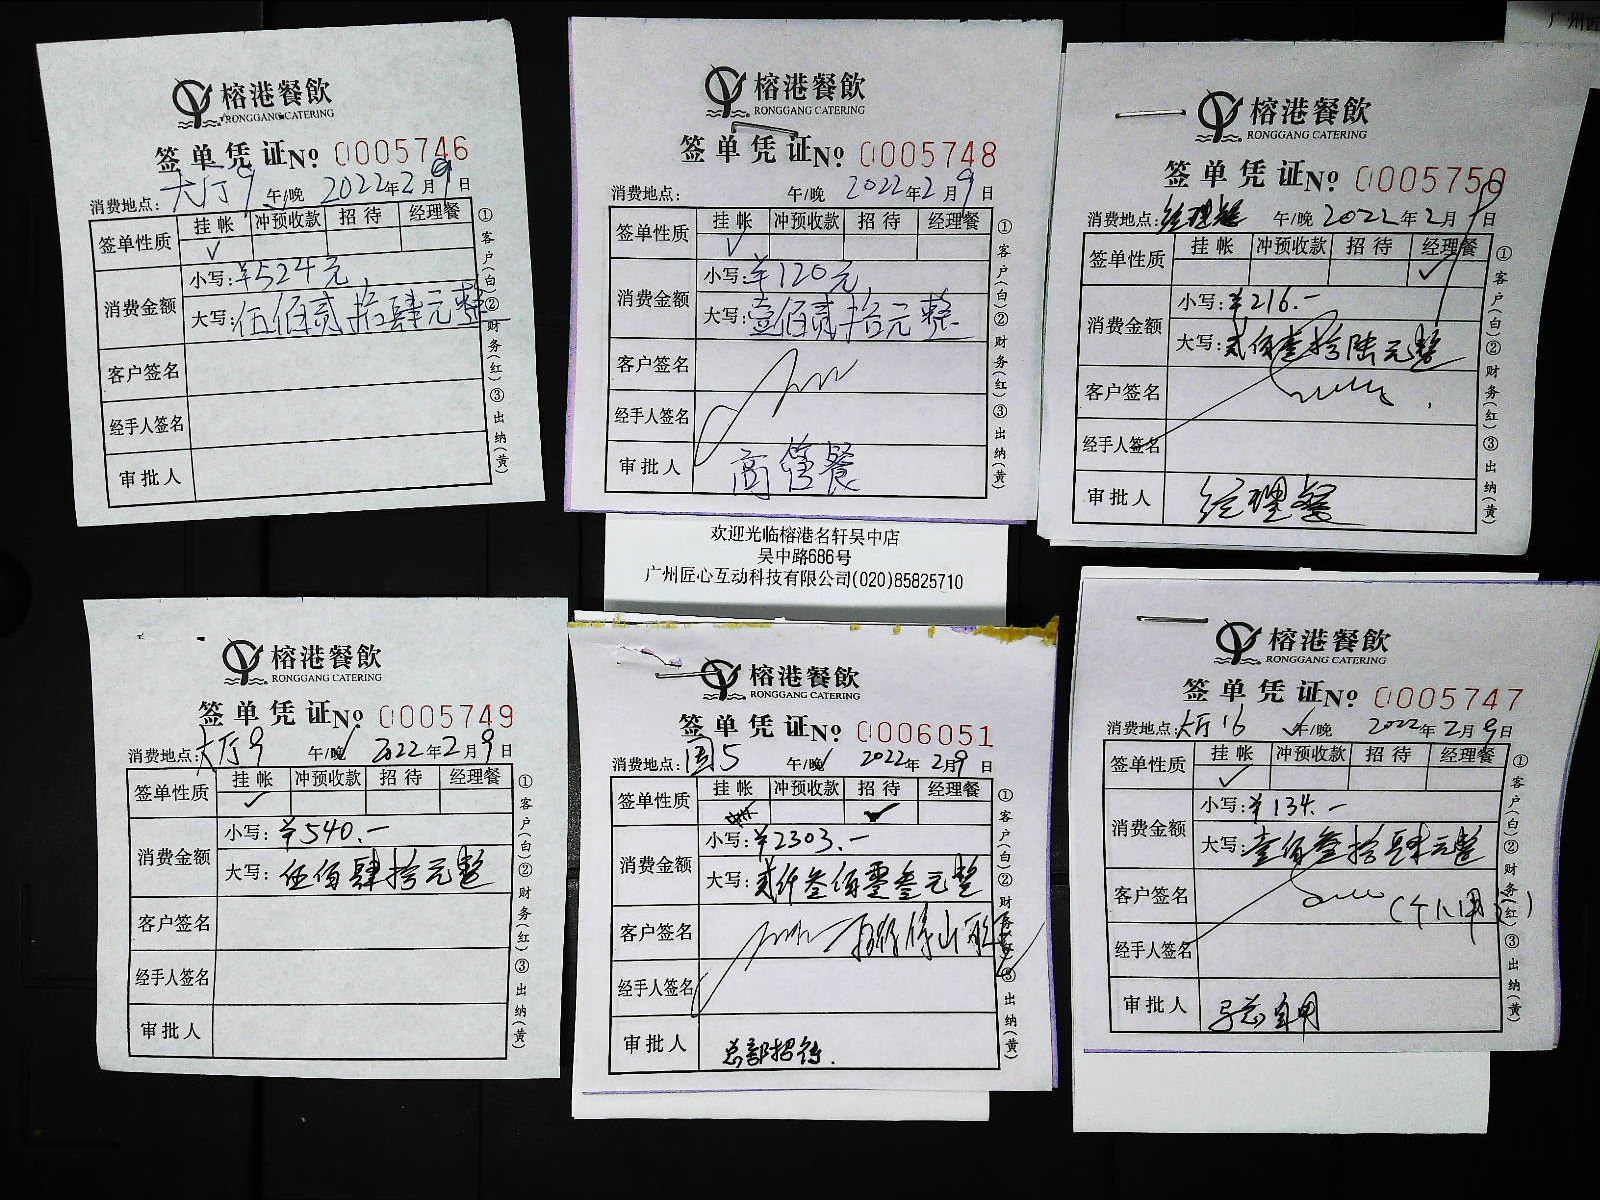 榕港餐飲
RONGGANG CATERING
签单凭证№ 0005746
消费地点: 大厅9 午/晚 2022年2月9日
签单性质 挂帐 冲预收款 招待 经理餐
✓
消费金额 小写:¥524元
大写:伍佰贰拾肆元整
客户签名
经手人签名
审批人
①客户(白)②财务(红)③出纳(黄)
榕港餐飲
RONGGANG CATERING
签单凭证№ 0005748
消费地点: 午/晚 2022年2月9日
签单性质 挂帐 冲预收款 招待 经理餐
✓
消费金额 小写:¥120元
大写:壹佰贰拾元整
客户签名
经手人签名
审批人 商管餐
①客户(白)②财务(红)③出纳(黄)
广州匠
榕港餐飲
RONGGANG CATERING
签单凭证№ 0005750
消费地点:经理餐 午/晚 2022年2月9日
签单性质 挂帐 冲预收款 招待 经理餐
✓
消费金额 小写:¥216.-
大写:贰佰壹拾陆元整
客户签名
经手人签名
审批人 经理餐
①客户(白)②财务(红)③出纳(黄)
欢迎光临榕港名轩吴中店
吴中路686号
广州匠心互动科技有限公司(020)85825710
榕港餐飲
RONGGANG CATERING
签单凭证№ 0005749
消费地点:大厅9 午/晚 2022年2月9日
签单性质 挂帐 冲预收款 招待 经理餐
✓
消费金额 小写:¥540.-
大写:伍佰肆拾元整
客户签名
经手人签名
审批人
①客户(白)②财务(红)③出纳(黄)
榕港餐飲
RONGGANG CATERING
签单凭证№ 0006051
消费地点: 5 午/晚 2022年2月9日
签单性质 挂帐 冲预收款 招待 经理餐
✓
消费金额 小写:¥2303.-
大写:贰仟叁佰零叁元整
客户签名
经手人签名
审批人 总部招待.
①客户(白)②财务(红)③出纳(黄)
榕港餐飲
RONGGANG CATERING
签单凭证№ 0005747
消费地点:大厅16 午/晚 2022年2月9日
签单性质 挂帐 冲预收款 招待 经理餐
✓
消费金额 小写:¥134.-
大写:壹佰叁拾肆元整
客户签名 (个人用)
经手人签名
审批人 总自用
①客户(白)②财务(红)③出纳(黄)